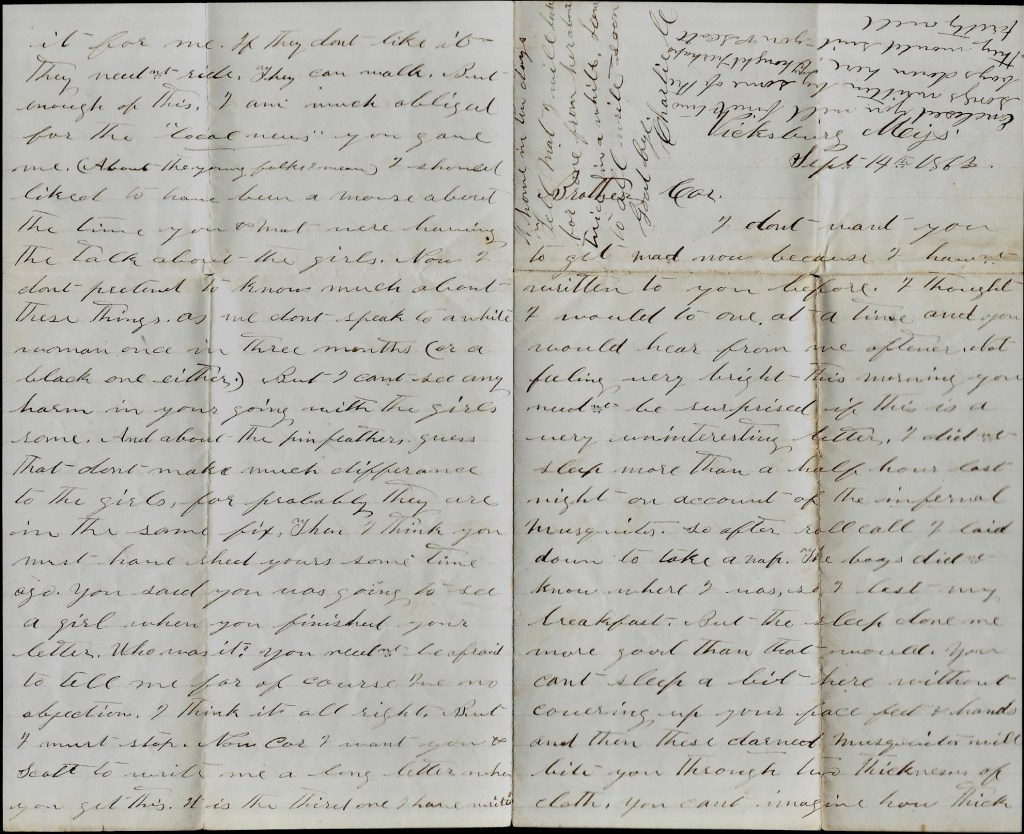 it for me. If they dont like it
they neednt ride. They can walk. But
enough of this. I am much obliged
for the "local news" you gave
me. (About the young folks I mean) I should
liked to have been a mouse about
the time you & Mat were having
the talk about the girls. Now I
dont pretend to know much about
these things. as we dont speak to a white
woman once in three months (or a
black one either.) But I cant see any
harm in your going with the girls
some. And about the pinfeathers. guess
that dont make much differance
to the girls, for probably they are
in the same fix. Then I think you
must have shed yours some time
ago. You said you was going to see
a girl when you finished your
letter. Who was it? You neednt be afraid
to tell me for of course Ive no
objection. I think its all right. But
I must stop. Now Cor I want you &
Scott to write me a long letter when
you get this. It is the third one I have writen
home in ten days
tell Mat I will look
for one from her
once in a while.
to all write soon
Good bye
Charlie
Enclosed you will find two
songs written by some of the
boys down here. I thought perhaps
they would suit you & Scott
pretty well
Vicksburg Miss
Sept 14th 1863.
Brother Cor.
I dont want you
to get mad now because I havnt
written to you before. I thought
I would to one at a time and you
would hear from me oftener. Not
feeling very bright this morning you
neednt be surprised if this is a
very uninteresting letter. I didnt
sleep more than a half hour last
night on account of the infernal
Musquitos. So after roll call I laid
down to take a nap. The boys didnt
know where I was, so I lost my
breakfast. But the sleep done me
more good than that would. You
cant sleep a bit here without
covering up your face feet & hands
and then these darned Musquitos will
bite you through two thickness of
cloth. You cant imagine how thick